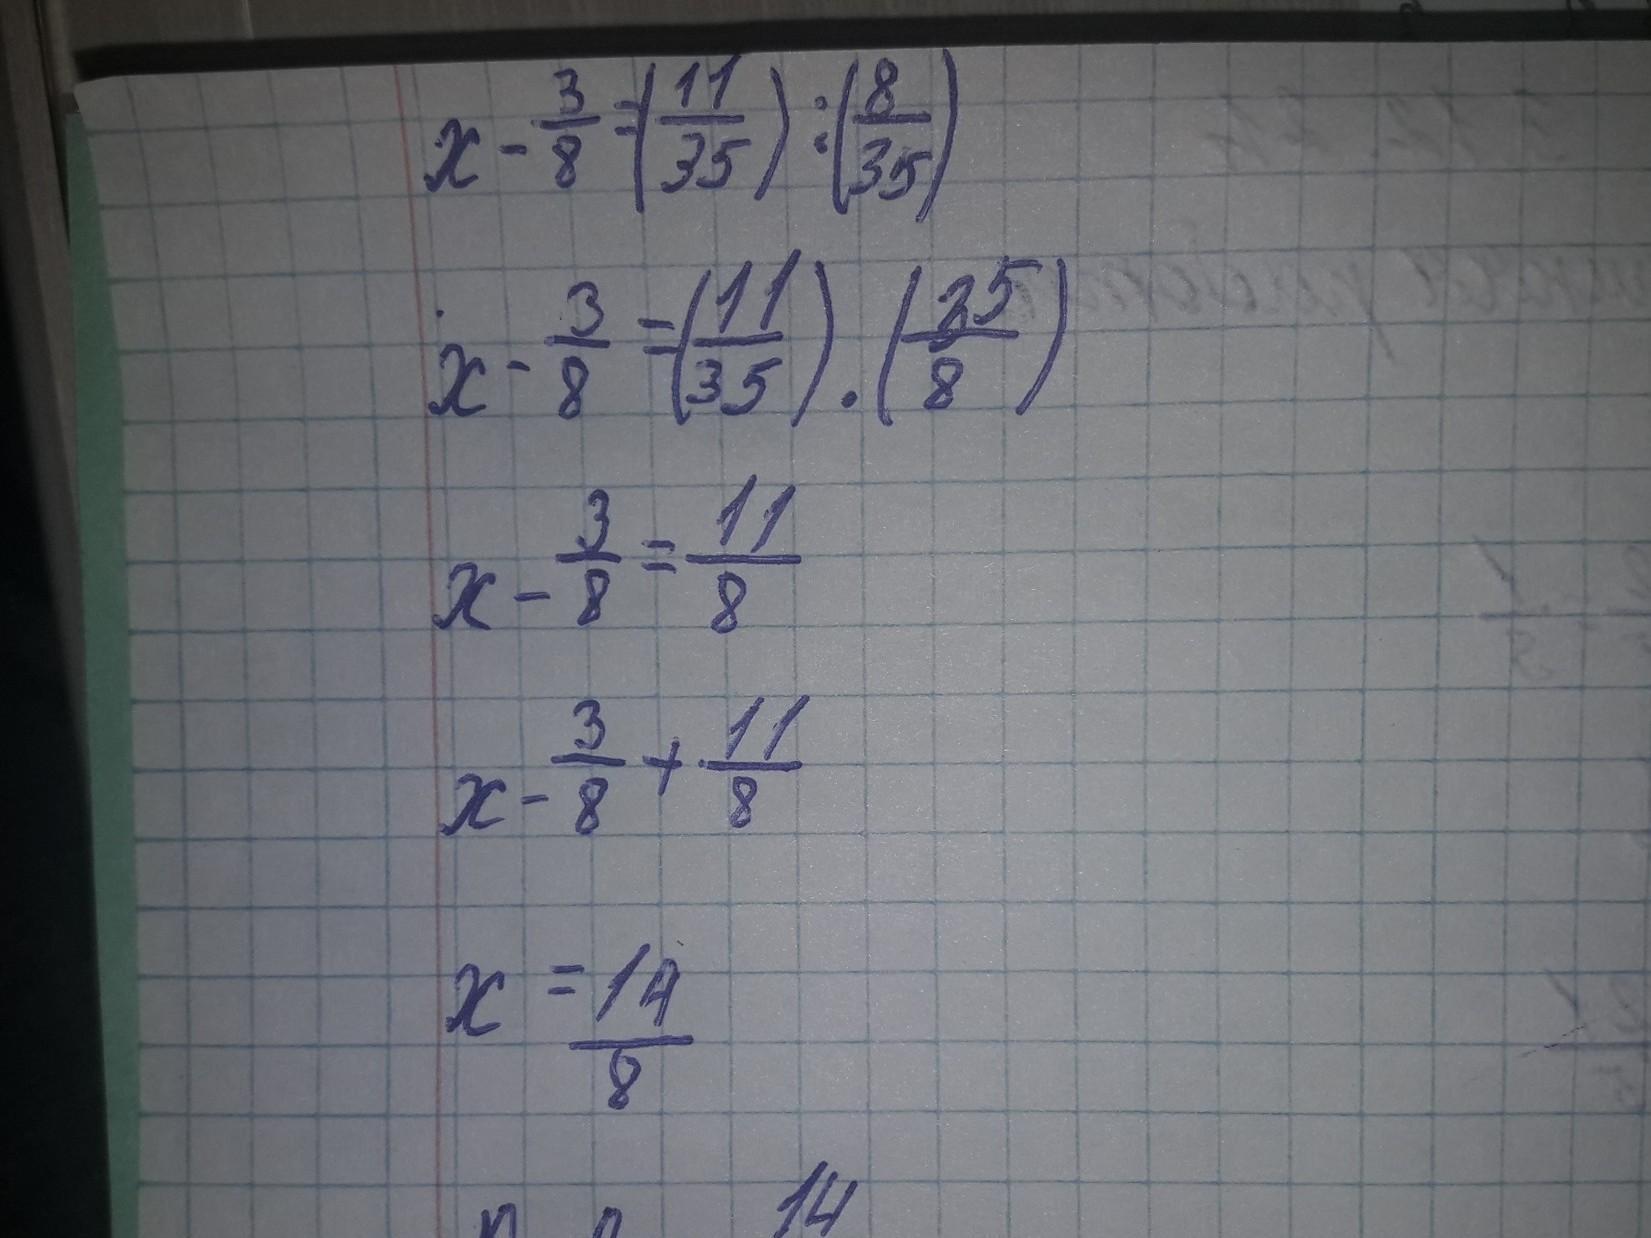 x - 3/8 = (11/35) : (8/35)
x - 3/8 = (11/35) . (35/8)
x - 3/8 = 11/8
x - 3/8 + 11/8
x = 14/8
14